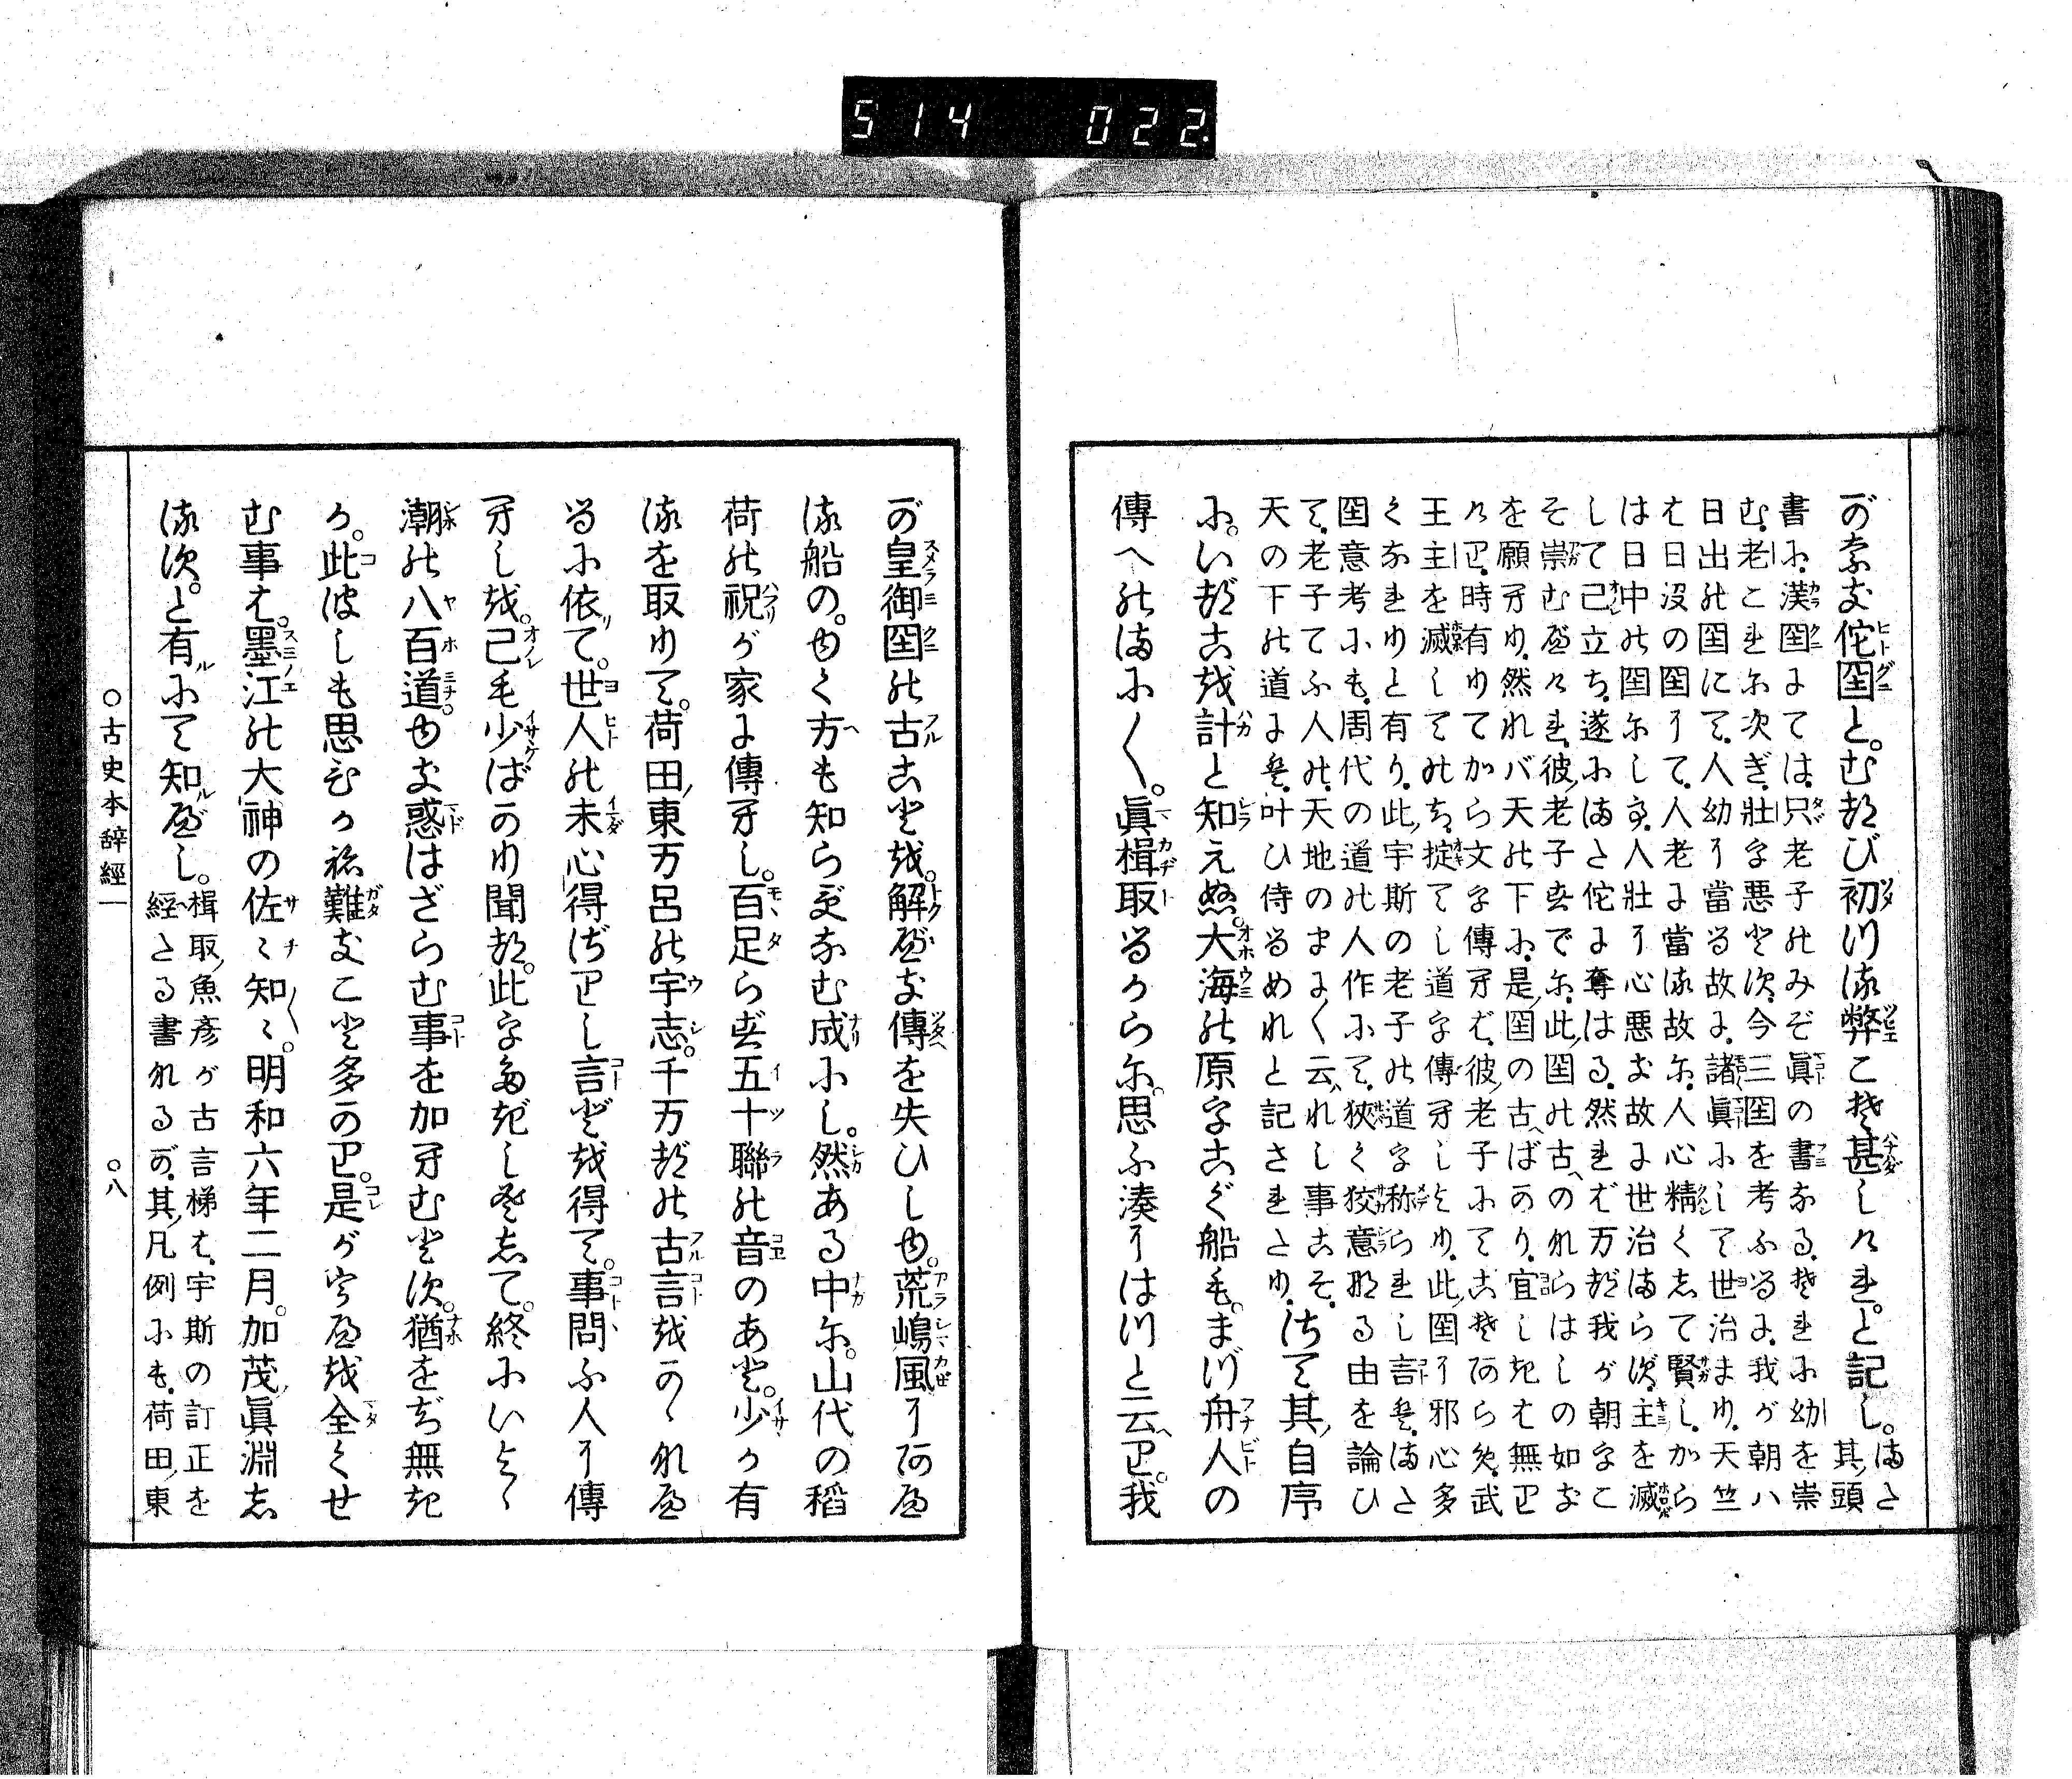 514 022.
がななる佗国と。むつび初つる弊こそ甚しけれと記し。また其頭
書に、漢国にては、只老子のみぞ眞の書なる。それに幼を崇
む。老これに次ぎ、壮を悪とす。今三国を考ふるに、我が朝ハ
日出の国にて、人幼に當る故に、諸眞にして世治まり、天竺
は日没の国にて、人老に當る故に、人心精くして賢し。から
は日中の国にして、人壮に心悪き故に世治まらず、主を滅
して己立ち、遂にまた佗に奪はる。然れば万づ我が朝をこ
そ崇むべけれ。彼老子すでに、此国の古へのれらはしの如き
を願へり。然れバ天の下に、是国の古へばかり、宜しきは無
けり。時有りてから文字傳へば、彼老子にてこそあらめ。武
王主を滅してのち、掟てし道を傳へしより、此国に邪心多
くなれりと有り。此宇斯の老子の道を称られし言は、また
国意考にも、周代の道の人作にて、狭く狡意なる由を論ひ
て、老子てふ人の、天地のまに〱云れし事こそ、
天の下の道には叶ひ侍るめれと記されたり。さて其自序
に。いつこを計と知えぬ。大海の原をこぐ船も。まづ舟人の
傳へのまに〱。眞楫取るからに。思ふ湊にはつと云へり。我
が皇御国の古ことを。解べき傳を失ひしゆ。荒嶋風にあへ
る船の。ゆく方も知らずなむ成にし。然ある中に。山代の稻
荷の祝が家に傳へし。百足らず五十聯の音のあと。少か有
るを取りて。荷田東万呂の宇志。千万づの古言をかゝれへ
るに依て。世人の未心得ざりし言どを得て。事問ふ人に傳
へしを。己も少ばかり聞つ。此をたぎしをして。終にいよゝ
潮の八百道ゆき惑はざらむ事を加へむとす。猶をぢ無き
か。此彼しも思ひかね難きこと多かり。是が宇へを全くせ
む事は。墨江の大神の佐〻知〻〱。明和六年二月。加茂眞淵し
るす。と有るにて知るべし。楫取魚彦が古言梯は、宇斯の訂正を
經たる書なるが、其凡例にも、荷田東
○古史本辭經一 ○八